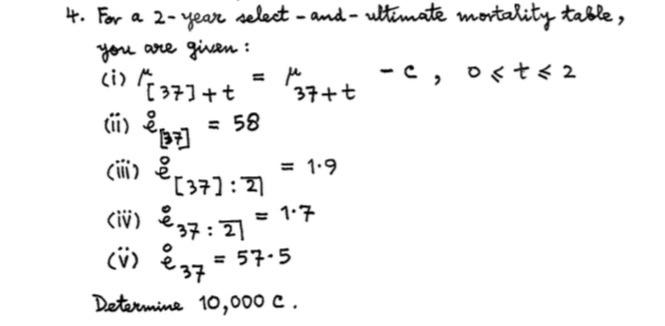 4. For a 2-year select-and-ultimate mortality table,
you are given :
(i) μ[37]+t = μ37+t - c , 0 ≤ t ≤ 2
(ii) e̊[37] = 58
(iii) e̊[37]:2̅| = 1.9
(iv) e̊37:2̅| = 1.7
(v) e̊37 = 57.5
Determine 10,000 c .